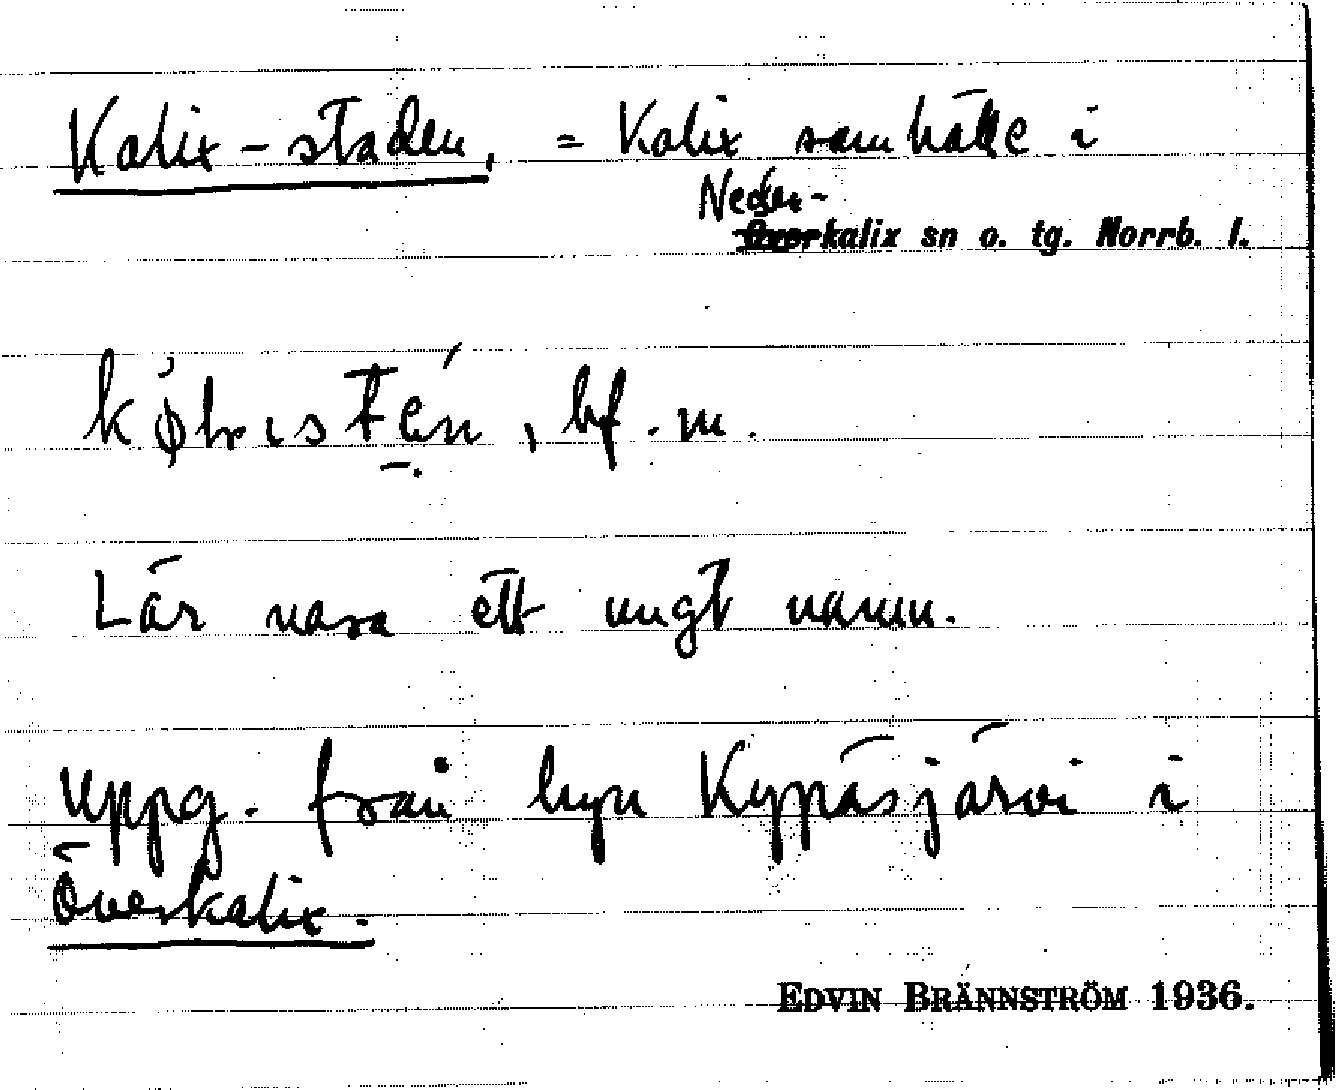 Kalix-staden, = Kalix samhälle i
Neder-
Överkalix sn o. tg. Norrb. l.
bf. m.
Lär vara ett ungt namn.
Uppg. från byn Kypäsjärvi i
Överkalix.
EDVIN BRÄNNSTRÖM 1936.